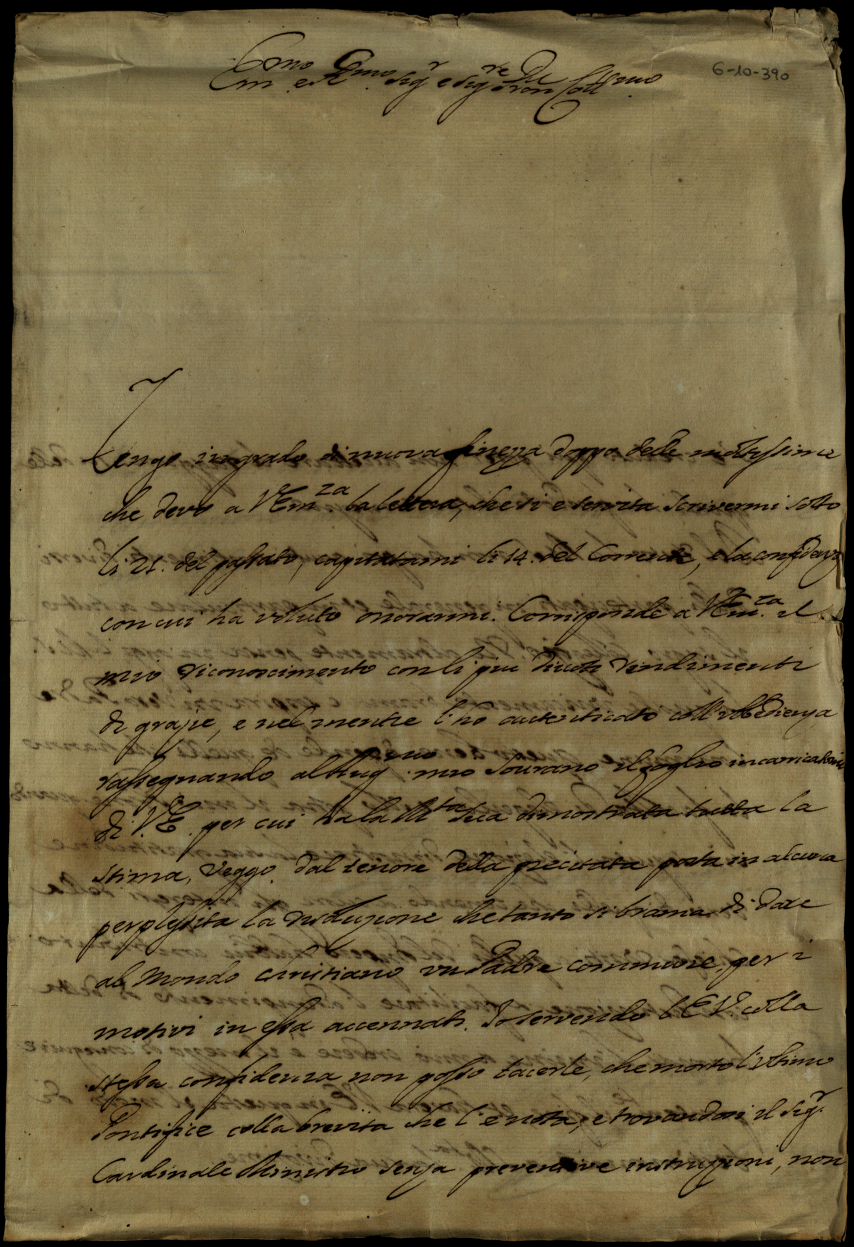 Em.mo e R.mo Sig.r e Sig.re P.ron Coll.mo
6-10-390
Tengo in grado di nuova finezza doppo delle moltissime
che devo a V.Em.za la lettera, che si è servita scrivermi sotto
li 21. del passato, capitatami li 14. del Corrente, e la confidenza
con cui ha voluto onorarmi. Corrisponde a V.Em.za il
mio riconoscimento con li più divoti rendimenti
di grazie, e nel mentre l'hò autenticato coll'obbedienza
rassegnando al mio Sovrano il foglio
di V.E. per cui ha la M.tà Sua dimostrata tutta la
stima, veggo dal tenore della precitata posta in alcuna
perplessità la risoluzione che tanto si brama di dare
al Mondo Cristiano un Padre commune, per i
motivi in essa accennati. Io servendo l'E.V. colla
stessa confidenza non posso tacerle, che morto l'ultimo
Pontefice colla brevità che l'è nota, e trovandosi il Sig.r
Cardinale Ministro senza preventive instruzioni, non